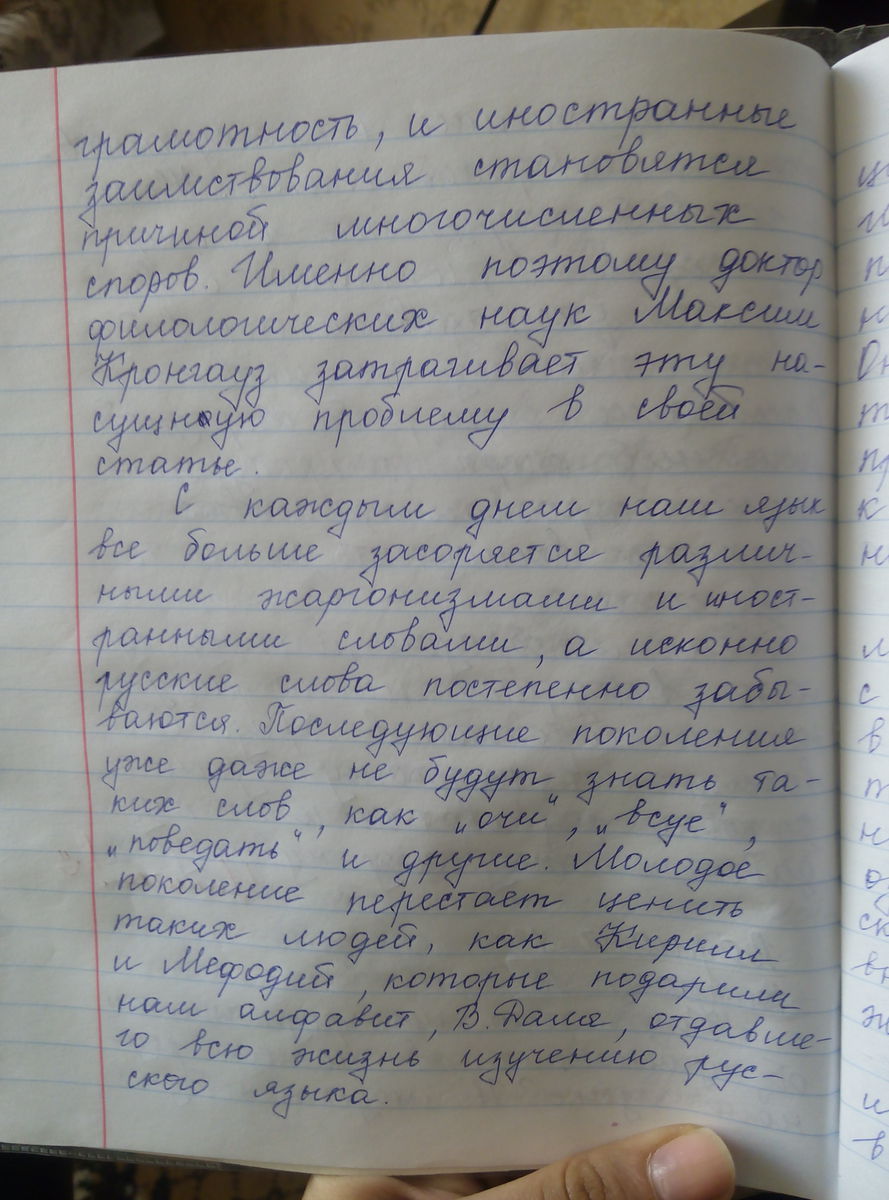 грамотность, и иностранные
заимствования становятся
причиной многочисленных
споров. Именно поэтому доктор
филологических наук Максим
Кронгауз затрагивает эту на-
сущную проблему в своей
статье.
С каждым днем наш язык
все больше засоряется различ-
ными жаргонизмами и иност-
ранными словами, а исконно
русские слова постепенно забы-
ваются. Последующие поколения
уже даже не будут знать та-
ких слов, как „очи", „всуе",
„поведать" и другие. Молодое
поколение перестает ценить
таких людей, как Кирилл
и Мефодий, которые подарили
нам алфавит, В. Даля, отдавше-
го всю жизнь изучению рус-
ского языка.